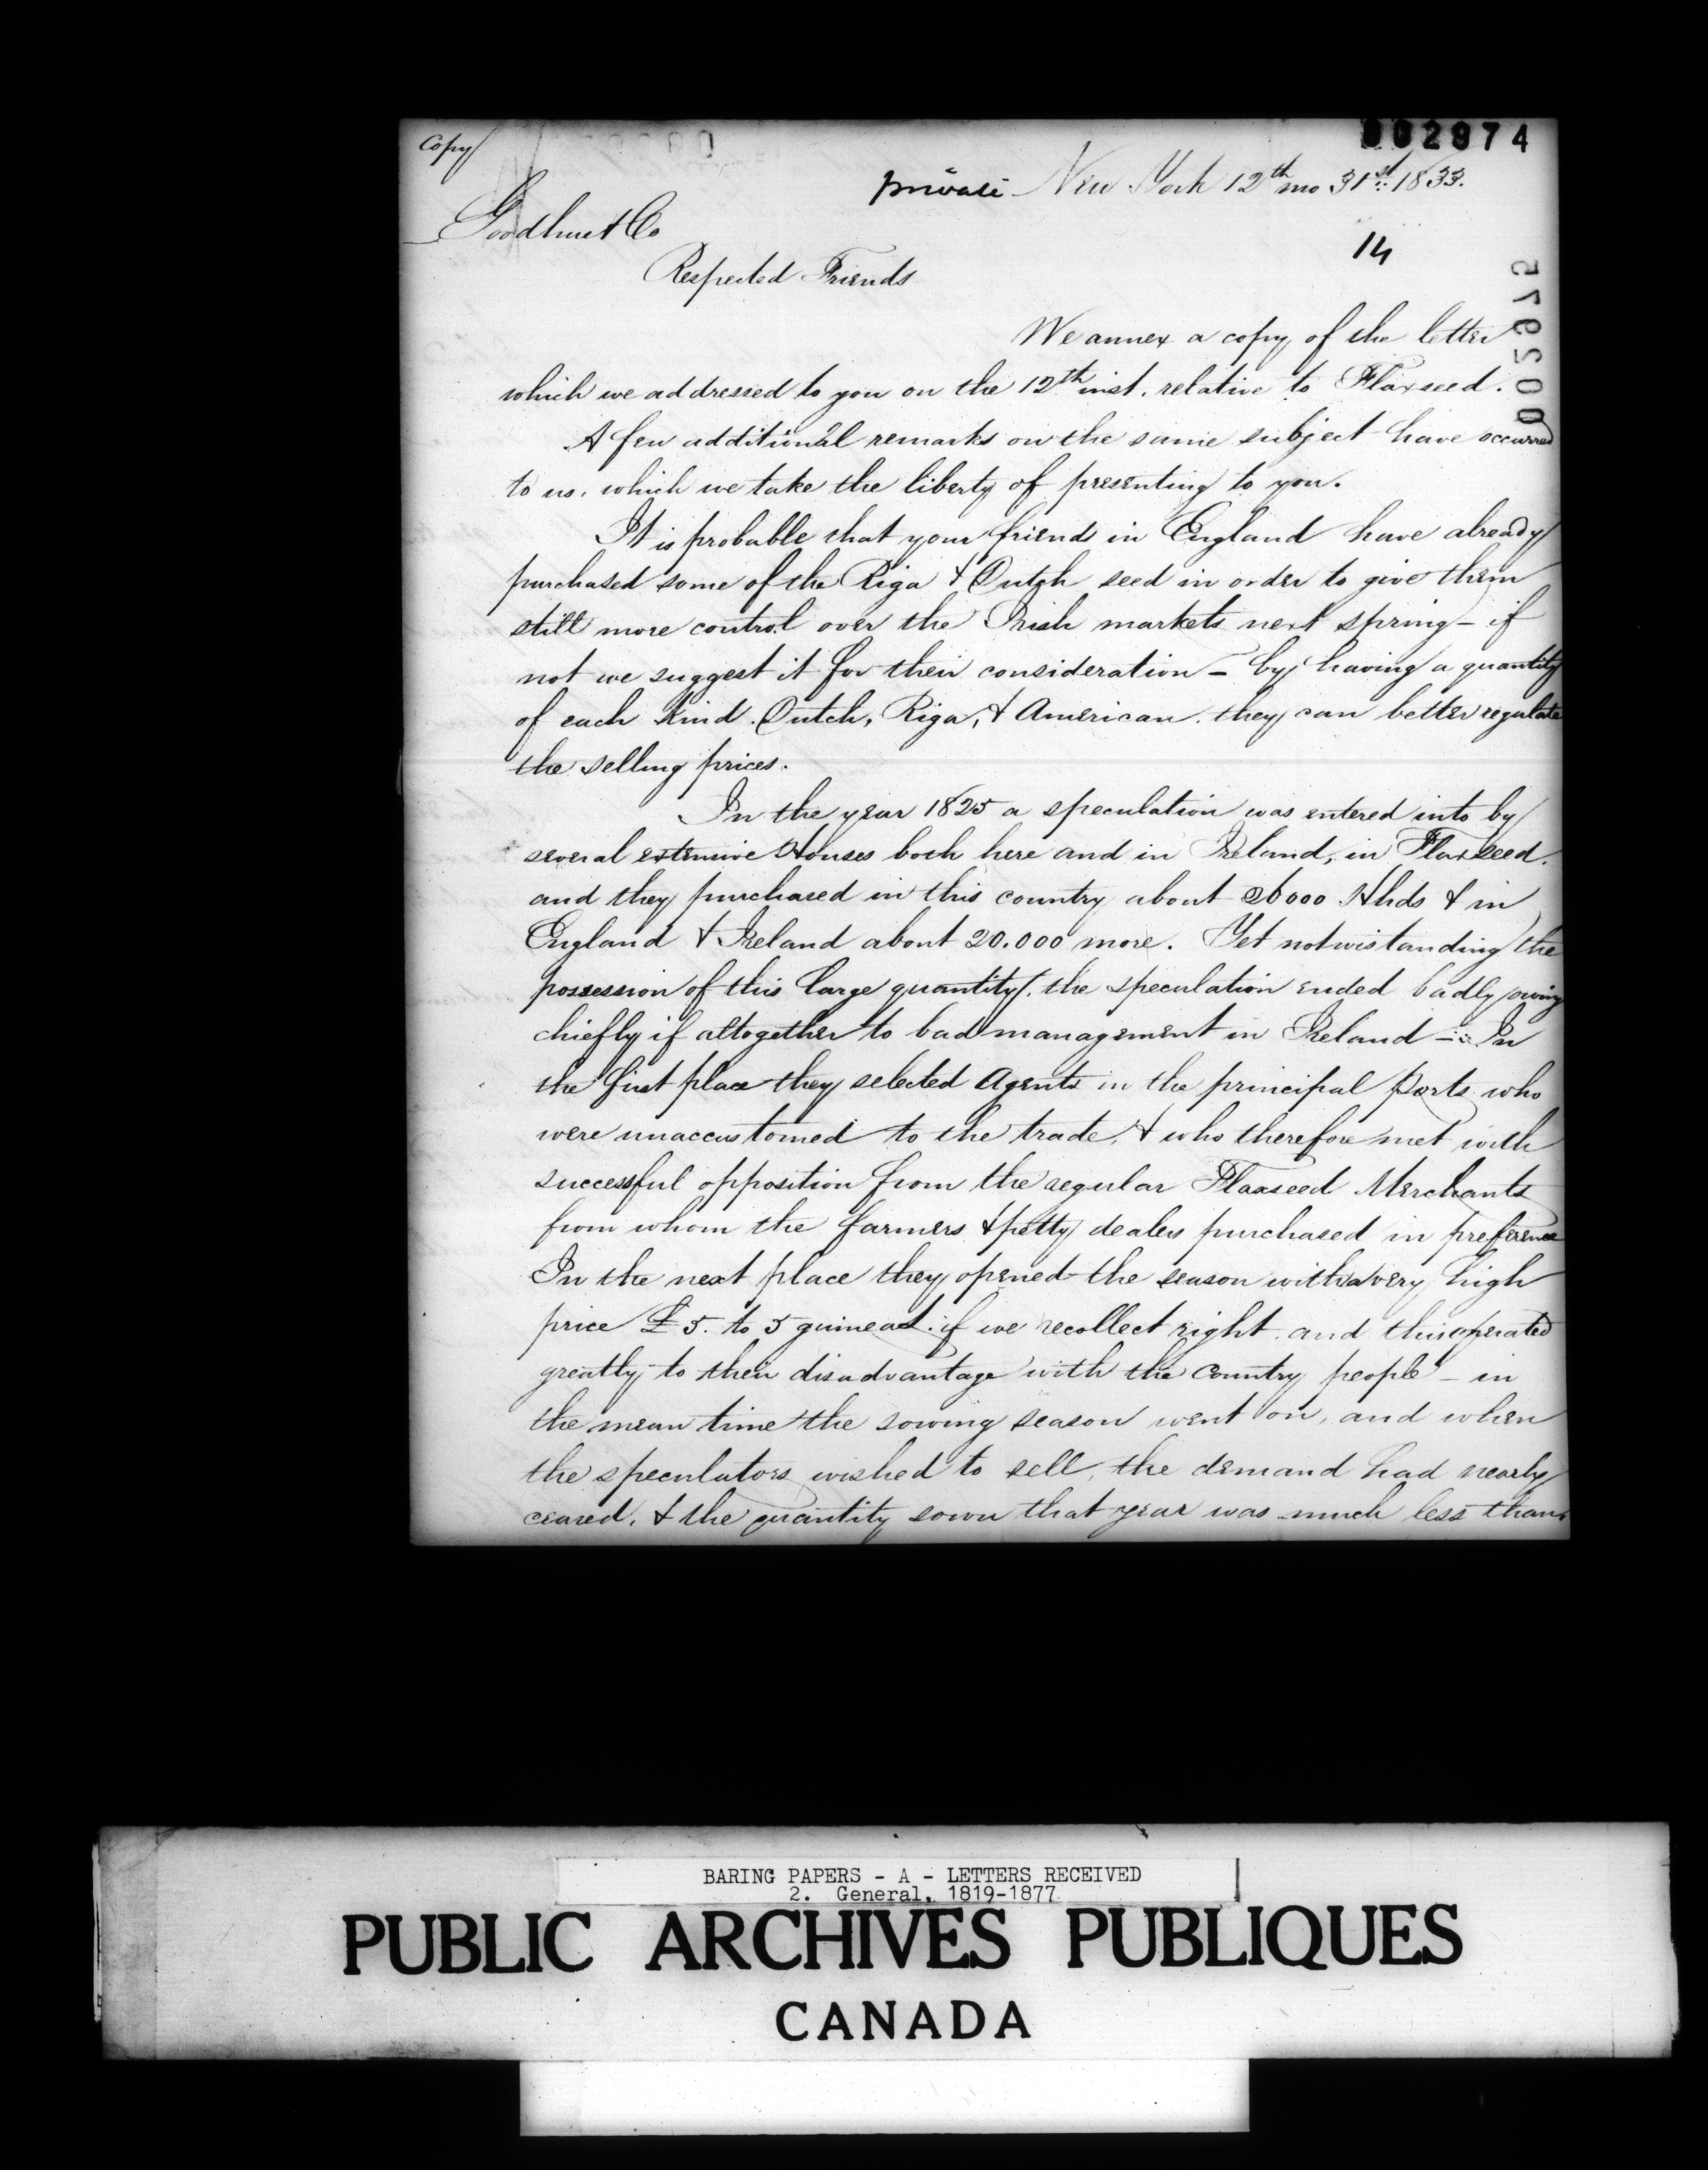 Copy
002974
private New York 12th mo 31st 1833.
Goodhue & Co
14
Respected Friends
We annex a copy of the letter
which we addressed to you on the 12th inst. relative to Flaxseed.
A few additional remarks on the same subject have occurred
to us, which we take the liberty of presenting to you.
It is probable that your friends in England have already
purchased some of the Riga & Dutch seed in order to give them
still more control over the Irish markets next spring – if
not we suggest it for their consideration – by having a quantity
of each kind. Dutch, Riga, & American. they can better regulate
the selling prices.
In the year 1825 a speculation was entered into by
several extensive Houses both here and in Ireland, in Flaxseed.
and they purchased in this country about 26000 Hhds & in
England & Ireland about 20.000 more. Yet notwistanding the
possession of this large quantity, the speculation ended badly owing
chiefly if altogether to bad management in Ireland – In
the first place they selected Agents in the principal Ports who
were unaccustomed to the trade, & who therefore met with
successful opposition from the regular Flaxseed Merchants
from whom the farmers & petty dealers purchased in preference
In the next place they opened the season with a very high
price £5. to 5 guineas. if we recollect right. and this operated
greatly to their disadvantage with the Country people – in
the mean time the sowing season went on, and when
the speculators wished to sell, the demand had nearly
ceased, & the quantity sown that year was much less than
BARING PAPERS - A - LETTERS RECEIVED
2. General, 1819-1877
PUBLIC ARCHIVES PUBLIQUES
CANADA